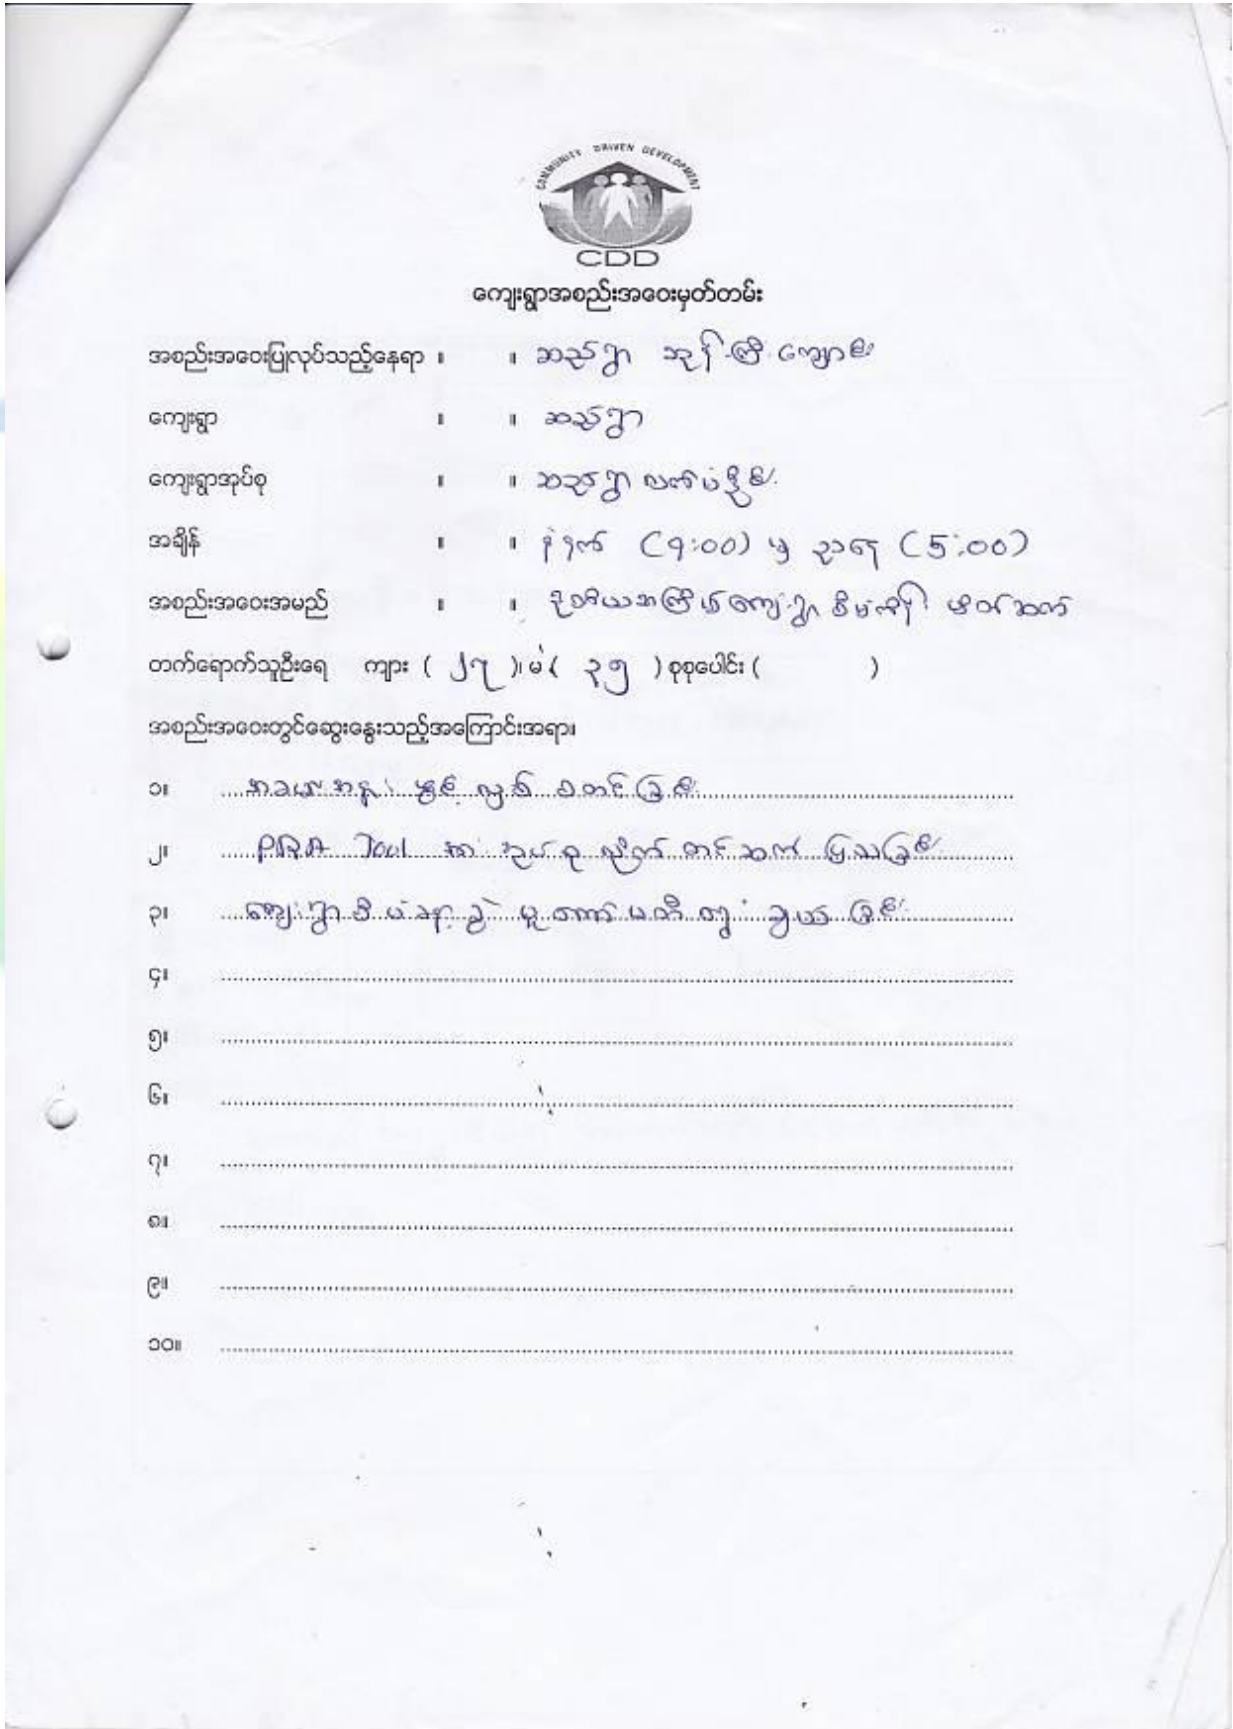 COMMUNITY DRIVEN DEVELOPMENT
CDD
ကျေးရွာအစည်းအဝေးမှတ်တမ်း
အစည်းအဝေးပြုလုပ်သည့်နေရာ ။ ။ ဆည်ရွာ ဘုန်းကြီးကျောင်း
ကျေးရွာ ။ ။ ဆည်ရွာ
ကျေးရွာအုပ်စု ။ ။ ဆည်ရွာ
အချိန် ။ ။ နံနက် (9:00) မှ ညနေ (5:00)
အစည်းအဝေးအမည် ။ ။ ဒုတိယအကြိမ် ကျေးရွာ
တက်ရောက်သူဦးရေ ကျား ( ၂၇ )၊ မ ( ၃၅ ) စုစုပေါင်း ( )
အစည်းအဝေးတွင်ဆွေးနွေးသည့်အကြောင်းအရာ။
၁။ အခမ်းအနား ဖွင့်လှစ်
၂။ PRA Tool အား အုပ်စုလိုက် တင်ဆက် ပြသခြင်း
၃။ ကျေးရွာစီမံခန့်ခွဲမှုကော်မတီ ရွေးချယ်ခြင်း
၄။
၅။
၆။
၇။
၈။
၉။
၁၀။